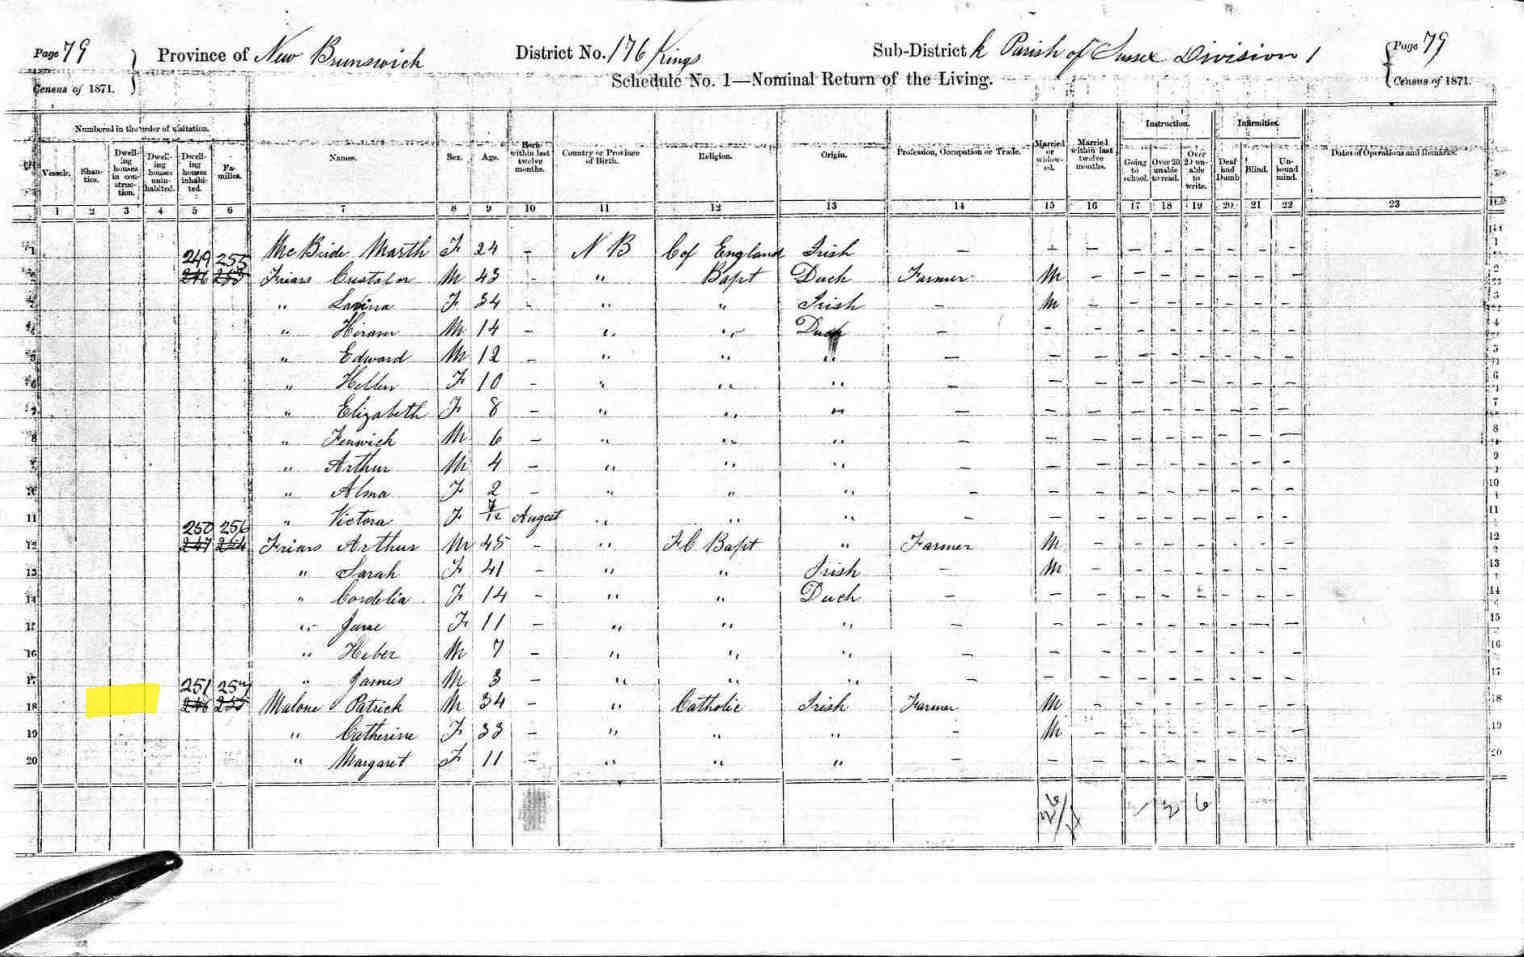 Page 79 Province of New Brunswick District No. 176 Kings Sub-District k Parish of Sussex Division 1 Page 79
Census of 1871. Schedule No. 1—Nominal Return of the Living. Census of 1871.
Numbered in the order of visitation. Instruction. Infirmities.
Vessels. Shanties. Dwelling houses in construction. Dwelling houses uninhabited. Dwelling houses inhabited. Families. Names. Sex. Age. Born within last twelve months. Country or Province of Birth. Religion. Origin. Profession, Occupation or Trade. Married or widowed. Married within last twelve months. Going to school. Over 20 unable to read. Over 20 unable to write. Deaf and Dumb Blind. Unsound mind. Dates of Operations and Remarks.
1 2 3 4 5 6 7 8 9 10 11 12 13 14 15 16 17 18 19 20 21 22 23
1 McBride Marth F 24 - N B C of England Irish - - - - - - - - - 1
249 255
2 246 253 Friars Gustafor M 43 - " Bapt Duch Farmer M - - - - - - - 2
3 " Lavina F 34 - " " Irish - M - - - - - - - 3
4 " Hiram M 14 - " " Duch - - - - - - - - - 4
5 " Edward M 12 - " " " - - - - - - - - - 5
6 " Hellen F 10 - " " " - - - - - - - - - 6
7 " Elizabeth F 8 - " " " - - - - - - - - - 7
8 " Fenwick M 6 - " " " - - - - - - - - - 8
9 " Arthur M 4 - " " " - - - - - - - - - 9
10 " Alma F 2 - " " " - - - - - - - - - 10
11 " Victora F August " " " - - - - - - - - - 11
250 256
12 247 254 Friars Arthur M 45 - " F C Bapt " Farmer M - - - - - - - 12
13 " Sarah F 41 - " " Irish - M - - - - - - - 13
14 " Cordelia F 14 - " " Duch - - - - - - - - - 14
15 " Jane F 11 - " " " - - - - - - - - - 15
16 " Heber M 7 - " " " - - - - - - - - - 16
17 " James M 3 - " " " - - - - - - - - - 17
251 257
18 248 255 Malone Patrick M 34 - " Catholic Irish Farmer M - - - - - - - 18
19 " Catherine F 33 - " " " - M - - - - - - - 19
20 " Margaret F 11 - " " " - - - - - - - - - 20